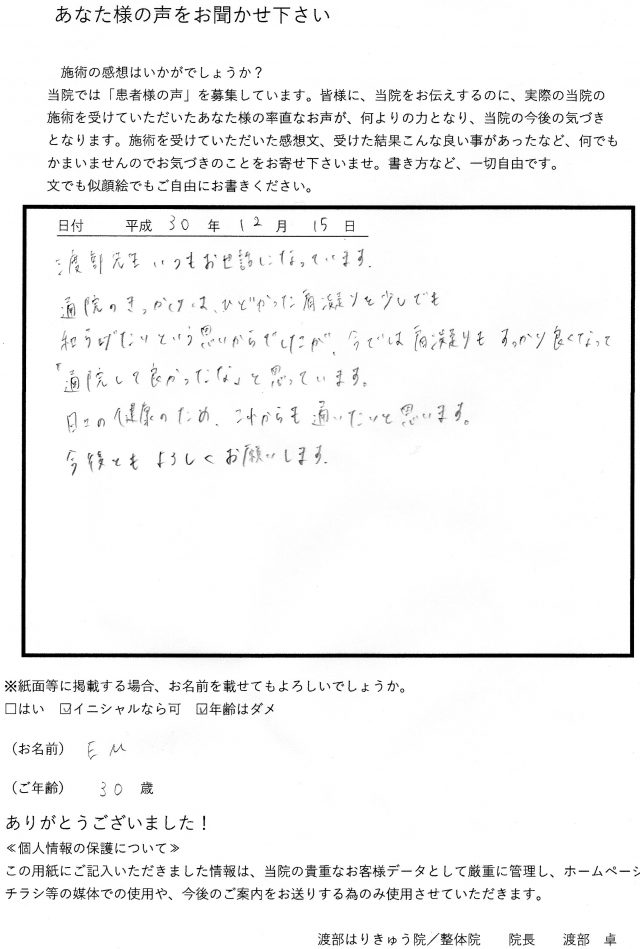 あなた様の声をお聞かせ下さい
施術の感想はいかがでしょうか？
当院では「患者様の声」を募集しています。皆様に、当院をお伝えするのに、実際の当院の
施術を受けていただいたあなた様の率直なお声が、何よりの力となり、当院の今後の気づき
となります。施術を受けていただいた感想文、受けた結果こんな良い事があったなど、何でも
かまいませんのでお気づきのことをお寄せ下さいませ。書き方など、一切自由です。
文でも似顔絵でもご自由にお書きください。
日付 平成 30 年 12 月 15 日
渡部先生いつもお世話になっています。
通院のきっかけは、ひどかった肩凝りを少しでも
和らげたいという思いからでしたが、今では肩凝りもすっかり良くなって
「通院して良かったな」と思っています。
日々の健康のため、これからも通いたいと思います。
今後ともよろしくお願いします。
※紙面等に掲載する場合、お名前を載せてもよろしいでしょうか。
□はい ☑イニシャルなら可 ☑年齢はダメ
（お名前） E M
（ご年齢） 30 歳
ありがとうございました！
≪個人情報の保護について≫
この用紙にご記入いただきました情報は、当院の貴重なお客様データとして厳重に管理し、ホームページ
チラシ等の媒体での使用や、今後のご案内をお送りする為のみ使用させていただきます。
渡部はりきゅう院／整体院 院長 渡部 卓